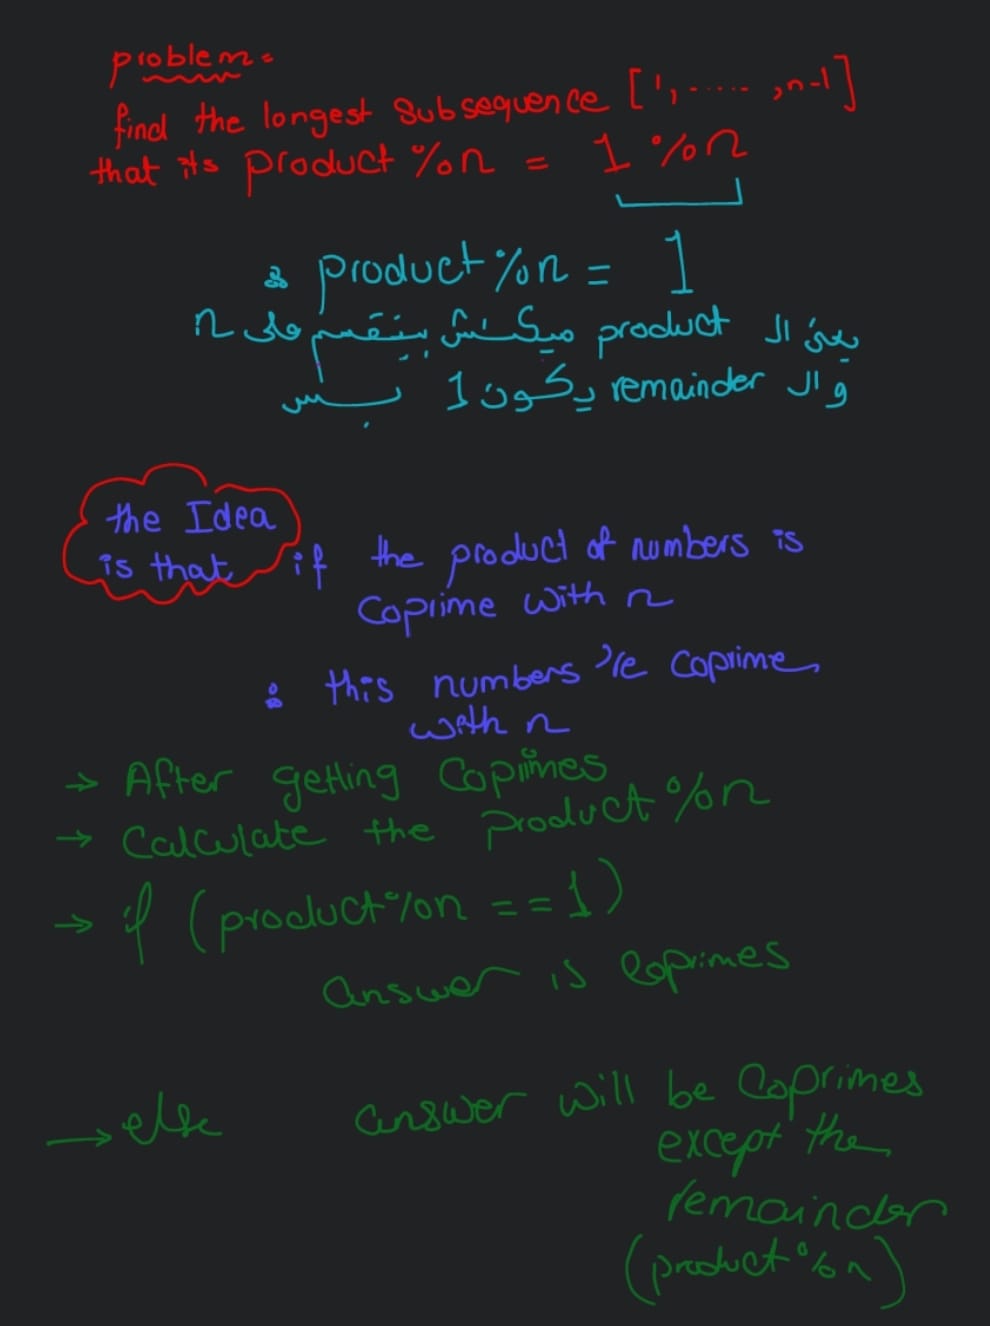 problem =
find the longest subsequence [1, ..... ,n-1]
that its product %n = 1 %n
∴ product %n = 1
يعني ال product ميكنش بينقسم على n
و ال remainder يكون 1 بس
the Idea
is that if the product of numbers is
Coprime with n
∴ this numbers 're coprime
with n
→ After getting Coprimes
→ Calculate the product %n
→ if (product%n == 1)
answer is coprimes
→ else answer will be Coprimes
except the
remainder
(product%n)